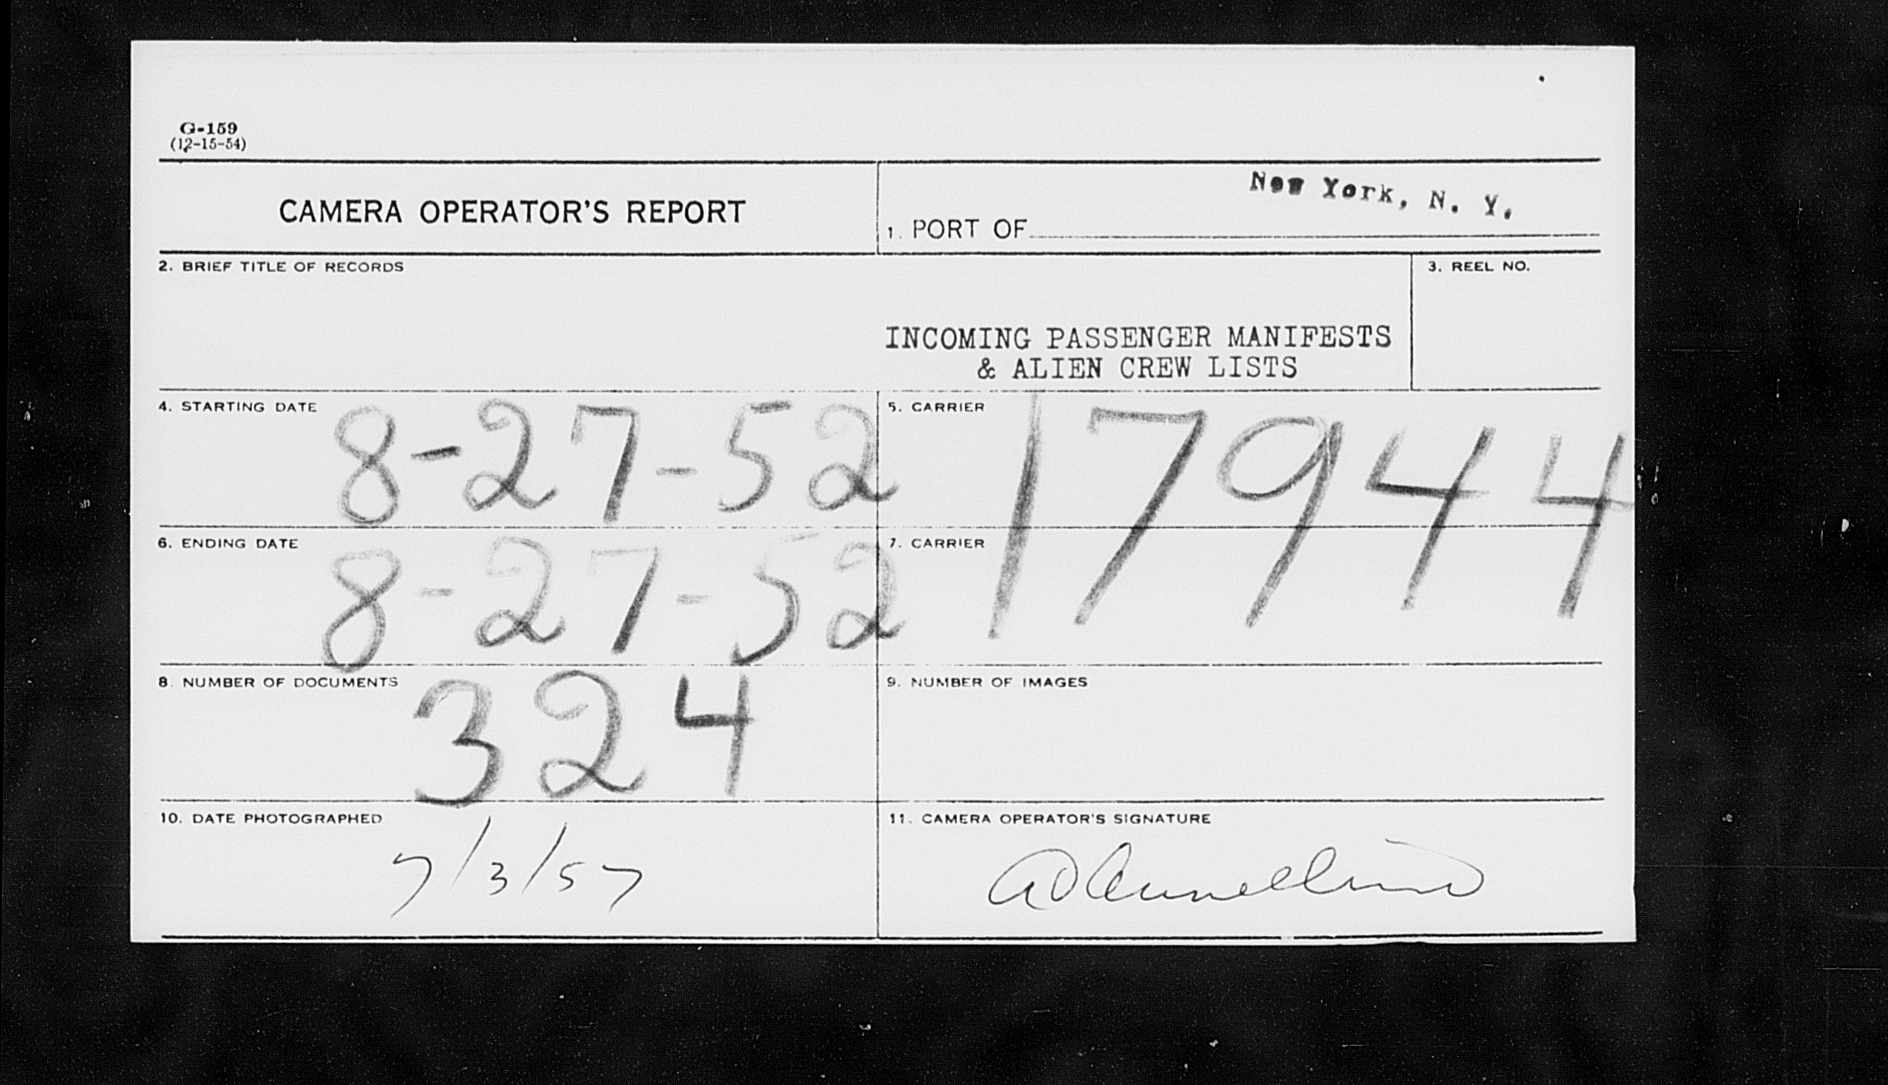 G-159
(12-15-54)
CAMERA OPERATOR'S REPORT
1. PORT OF New York, N. Y.
2. BRIEF TITLE OF RECORDS
INCOMING PASSENGER MANIFESTS
& ALIEN CREW LISTS
3. REEL NO.
4. STARTING DATE 8-27-52
5. CARRIER 17944
6. ENDING DATE 8-27-52
7. CARRIER
8. NUMBER OF DOCUMENTS 324
9. NUMBER OF IMAGES
10. DATE PHOTOGRAPHED
7/3/57
11. CAMERA OPERATOR'S SIGNATURE